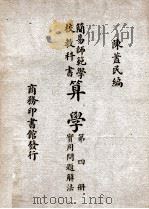 陳藎民編
簡易師範學
校教科書
算學
第四册
實用問題解法
商務印書館發行